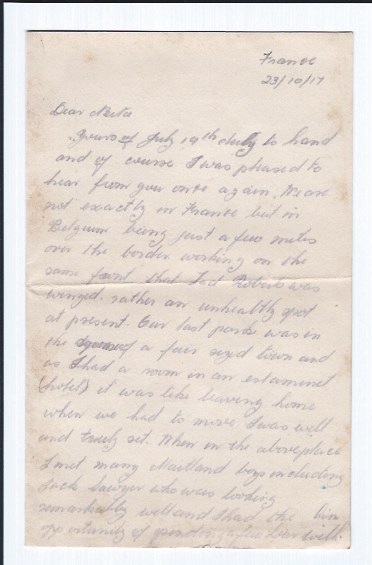 France
23/10/17
Dear
Yours of July 19th duly to hand
and of course I was pleased to
hear from you once again. We are
not exactly in France but in
Belgium being just a few miles
over the border working on the
same front that Ted Roberts was
winged. rather an unhealthy spot
at present. Our last possie was in
the of a fair sized town and
as I had a room in an estaminet
(hotel) it was like leaving home
when we had to move I was well
and truly set. When in the above place
I met many Maitland boys including
Jack Sawyer who was looking
remarkably well and I had the
of spending a few hours with